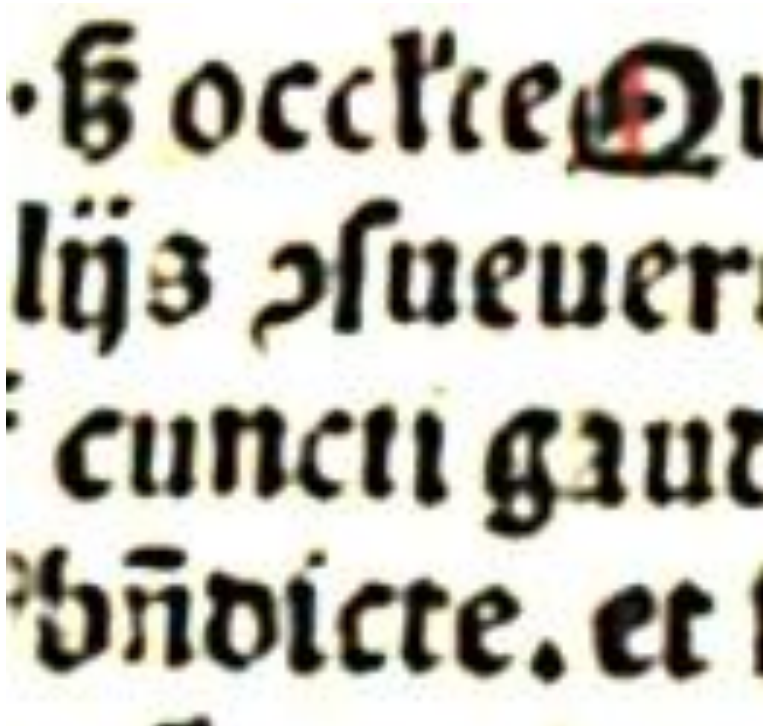 occłie Qu
lijs ꝯſueuer
cuncti gaud
bn̄dicte. et